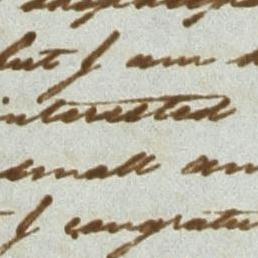 but I am
interested
small am
I congratu